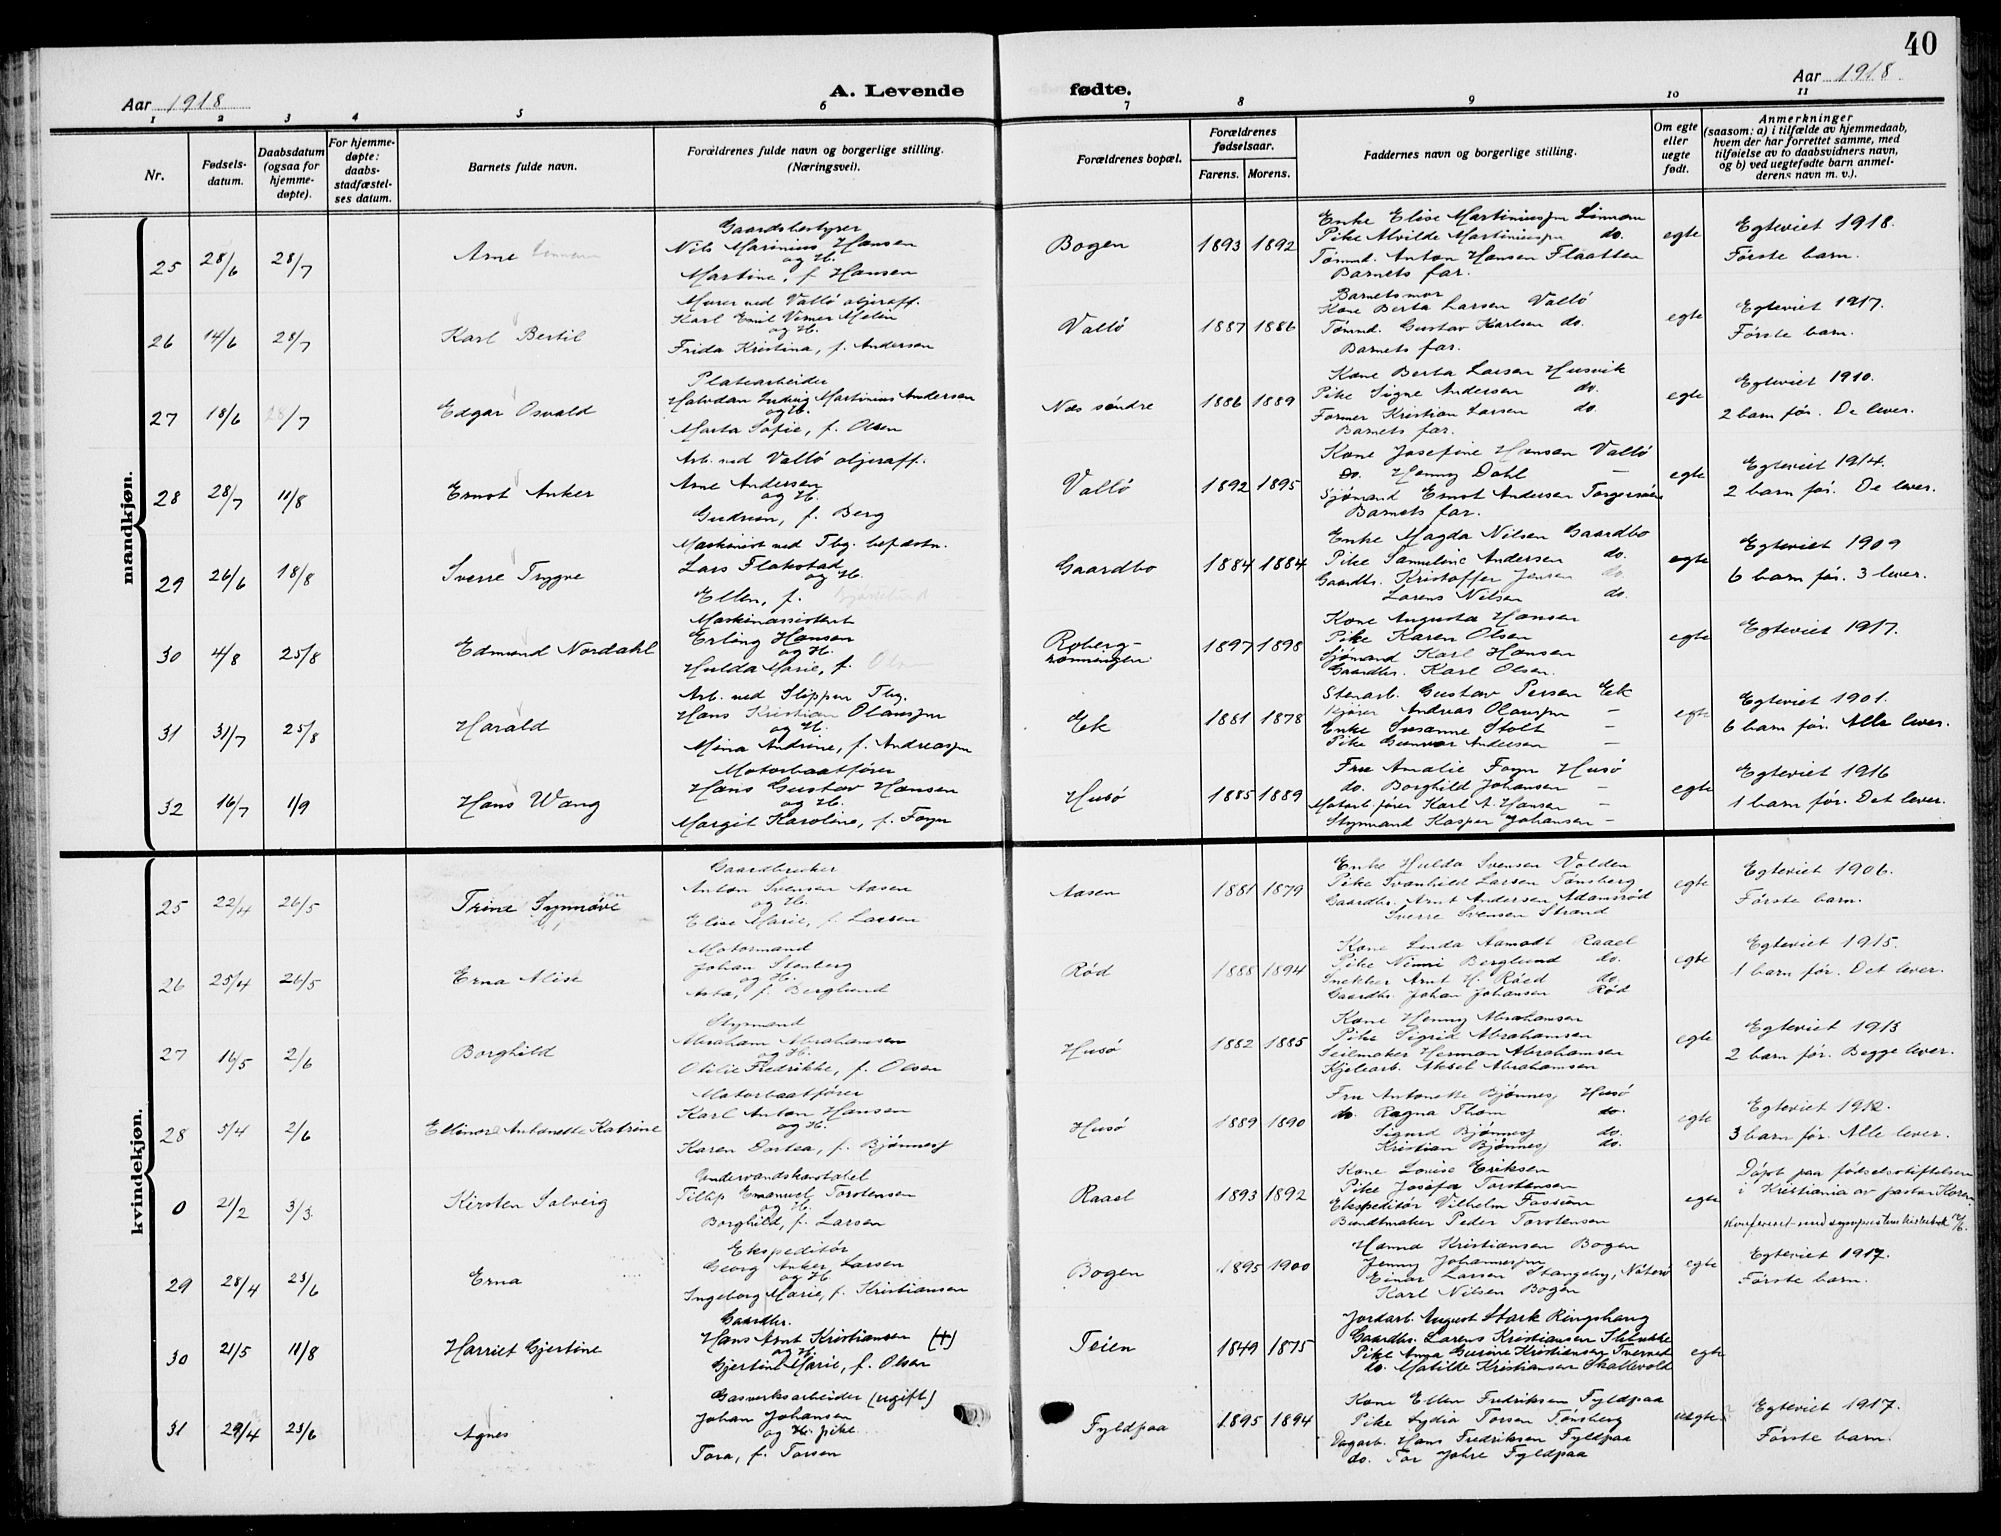 40
Aar 1918
A. Levende fødte.
Aar 1918
1 2 3 4 5 6 7 8 9 10 11
Nr.
Fødsels-
datum.
Daabsdatum
(ogsaa for
hjemme-
døpte).
For hjemme-
døpte:
daabs-
stadfæstel-
ses datum.
Barnets fulde navn.
Forældrenes fulde navn og borgerlige stilling.
(Næringsvei).
Forældrenes bopæl.
Forældrenes
fødselsaar.
Farens. Morens.
Faddernes navn og borgerlige stilling.
Om egte
eller
uegte
født.
Anmerkninger
(saasom: a) i tilfælde av hjemmedaab,
hvem der har forrettet samme, med
tilføielse av to daabsvidners navn,
og b) ved uegtefødte barn anmel-
derens navn m. v.).
mandkjøn.
25 28/6 28/7 Arne
Gaardsbestyrer
Nils Marinius Hansen
og H.
Martine, f. Hansen
Bogen 1893 1892
Enke Elise Martiniussen Linnom
Pike Alvilde Martiniussen do.
Tømmd. Anton Hansen Flaatten
Barnets far.
egte
Egteviet 1918.
Første barn.
26 14/6 28/7 Karl Bertil
Murer ved Vallö oljeraff.
Karl Emil Verner Melin
og H.
Frida Kristina, f. Andersen
Vallö 1887 1886
Barnets mor
Kone Berta Larsen Vallö
Tømmd. Gustav Karlsen do.
Barnets far.
egte
Egteviet 1917.
Første barn.
27 18/6 28/7 Edgar Osvald
Platearbeider
Halvdan Ludvig Martinius Andersen
og H.
Marta Sofie, f. Olsen
Næs söndre 1886 1889
Kone Berta Larsen Husvik
Pike Signe Andersen do.
Former Kristian Larsen do.
Barnets far.
egte
Egteviet 1910.
2 barn før. De lever.
28 28/7 11/8 Ernst Anker
Arb. ved Vallö oljeraff.
Arne Andersen
og H.
Gudrun, f. Berg
Vallö 1892 1895
Kone Josefine Hansen Vallö
do. Henny Dahl —
Sjømand Ernst Andersen Torgersøen
Barnets far.
egte
Egteviet 1914.
2 barn før. De lever.
29 26/6 18/8 Sverre Trygve
Maskinist ved Tbg. befæstn.
Lars Flakstad
og H.
Ellen, f.
Gaardbo 1884 1884
Enke Magda Nilsen Gaardbo
Pike Samuline Andersen do.
Gaardbr. Kristoffer Jensen do.
Lorens Nilsen do.
egte
Egteviet 1909
6 barn før. 3 lever.
30 4/8 25/8 Edmund Nordahl
Maskinassistent
Erling Hansen
og H.
Hulda Marie, f.
Roberg-
rønningen 1897 1898
Kone Augusta Hansen
Pike Karen Olsen
Sjømand Karl Hansen
Gaardbr. Karl Olsen.
egte
Egteviet 1917.
31 31/7 25/8 Harald
Arb. ved Slippen Tbg.
Hans Kristian Olaussen
og H.
Mina Andrine, f. Andreassen
Ek 1881 1878
Stenarb. Gustav Persen Ek
Kjører Andreas Olaussen —
Enke Susanne Stolt
Pike Gunvor Andersen —
egte
Egteviet 1901.
6 barn før. Alle lever.
32 16/7 1/9 Hans Wang
Motorbaatfører
Hans Gustav Hansen
og H.
Margit Karoline, f. Foyn
Husö 1885 1889
Fru Amalie Foyn Husö
do. Borghild Johansen —
Motorb.fører Karl A. Hansen —
Styrmand Kasper Johansen —
egte
Egteviet 1916
1 barn før. Det lever.
kvindekjøn.
25 22/4 26/5 Trine Synnöve
Gaardbruker
Anton Svensen Aasen
og H.
Elise Marie, f. Larsen
Aasen 1881 1879
Enke Hulda Svensen Volden
Pike Svanhild Larsen Tønsberg
Gaardbr. Arnt Andersen Adamsrød
Sverre Svensen Strand
egte
Egteviet 1906.
Første barn.
26 25/4 26/5 Erna Alise
Motormand
Johan Stenberg
og H.
Asta, f. Berglund
Rød 1888 1894
Kone Linda Aamodt Raael
Pike Ninni Berglund do.
Snekker Arnt H. Röed do.
Gaardbr. Johan Johansen Rød
egte
Egteviet 1915.
1 barn før. Det lever.
27 16/5 2/6 Borghild
Styrmand
Abraham Abrahamsen
og H.
Otilie Fredrikke, f. Olsen
Husö 1882 1885
Kone Henny Abrahamsen
Pike Sigrid Abrahamsen
Seilmaker Herman Abrahamsen
Kjelearb. Aksel Abrahamsen
egte
Egteviet 1913
2 barn før. Begge lever.
28 5/4 2/6 Ellinore Antonette Katrine
Motorbaatfører
Karl Anton Hansen
og H.
Karen Dortea, f. Bjönnes
Husö 1889 1890
Fru Antonette Bjönnes Husö
do. Ragna Thom do.
Sigurd Bjönnes do.
Kristian Bjönnes do.
egte
Egteviet 1912.
3 barn før. Alle lever.
0 21/2 3/3 Kirsten Solveig
Undervandskonstabel
Fillip Emanuel Torstensen
og H.
Borghild, f. Larsen
Raael 1893 1892
Kone Lovise Eriksen
Pike Josefa Torstensen
Ekspeditör Vilhelm
Bundtmaker Peder Torstensen
egte
Döpt paa födselsstiftelsen
i Kristiania av pastor Koren
29 28/4 23/6 Erna
Ekspeditör
Georg Anker Larsen
og H.
Ingeborg Marie, f. Kristiansen
Bogen 1895 1900
Hanna Kristiansen Bogen
Jenny Johannessen
Einar Larsen Stangeby, Nøterø
Karl Nilsen Bogen
egte
Egteviet 1917.
Første barn.
30 21/5 11/8 Harriet Gjertine
Gaardbr.
Hans Arnt Kristiansen (+)
og H.
Gjertine Marie, f. Olsen
Teien 1849 1875
Jordarb. August Stark Ringshaug
Gaardbr. Lorens Kristiansen
Pike Anna Gurine Kristiansen Tverved
do. Matilde Kristiansen Skallevold
egte
31 29/4 23/6 Agnes
Gasverksarbeider (ugift)
Johan Johansen
og H. pike
Tora, f. Torsen
Fyldpaa 1895 1894
Kone Ellen Fredriksen Fyldpaa
Pike Lydia Torsen Tönsberg
Dagarb. Hans Fredriksen Fyldpaa
do. Tor Johre Fyldpaa
uegte
Egteviet 1917.
Første barn.